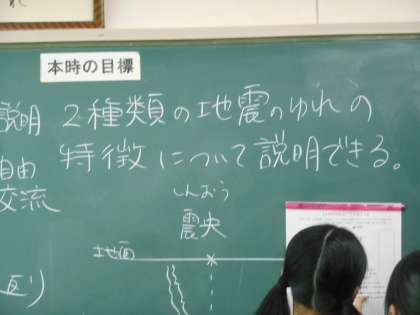 本時の目標
2種類の地震のゆれの
特徴について説明できる。
説明
自由
交流
しんおう
震央
地面